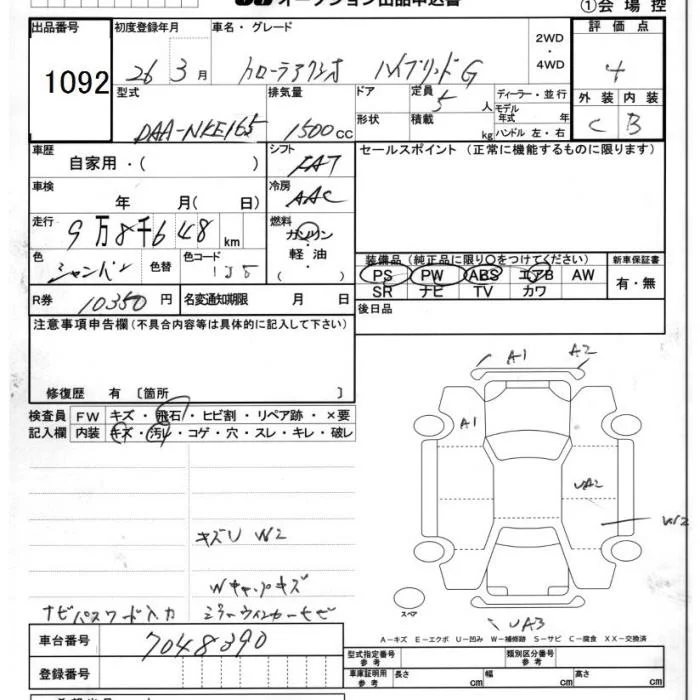 オークション出品申込書
①会場控
出品番号 初度登録年月 車名・グレード 2WD・4WD 評価点
1092 26 3月 カローラアクシオ ハイブリッドG 4
型式 排気量 ドア 定員 5人 ディーラー・並行 外装 内装
DAA-NKE165 1500cc 形状 積載 kg モデル年式 年 ハンドル 左・右 C B
車歴 シフト FAT セールスポイント (正常に機能するものに限ります)
自家用・( )
車検 年 月( 日) 冷房 AAC
走行 9万8千648km 燃料 ガソリン・軽油・( )
色 シャンパン 色替 色コード 1J5
装備品 (純正品に限り○をつけてください) 新車保証書
PS PW ABS エアB AW 有・無
SR ナビ TV カワ
R券 10350円 名変通知期限 月 日 後日品
注意事項申告欄(不具合内容等は具体的に記入して下さい)
修復歴 有 〔箇所 〕
検査員 FW キズ・飛石・ヒビ割・リペア跡・×要
記入欄 内装 キズ・汚レ・コゲ・穴・スレ・キレ・破レ
A1 A2
A1
UA2
W2
キズU W2
Wキャップキズ
ナビパスワード入力 ミラーウィンカーヒビ
スペア
UA3
A-キズ E-エクボ U-凹み W-補修跡 S-サビ C-腐食 XX-交換済
車台番号 7048390
型式指定番号 参考 類別区分番号 参考
登録番号 車庫証明用 参考 長さ cm 幅 cm 高さ cm